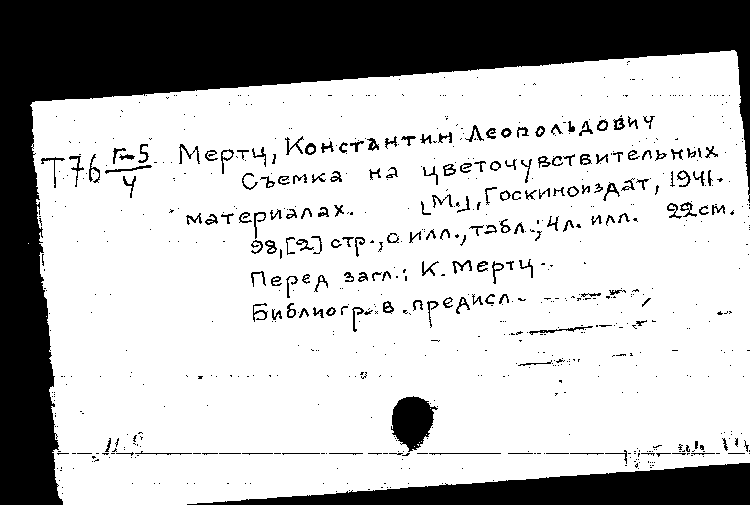 Т76 Г-5/4 Мертц, Константин Леопольдович
Съемка на цветочувствительных
материалах. [М.], Госкиноиздат, 1941.
98,[2] стр., с илл., табл.; 4л. илл. 22см.
Перед загл.: К. Мертц.
Библиогр. в предисл.